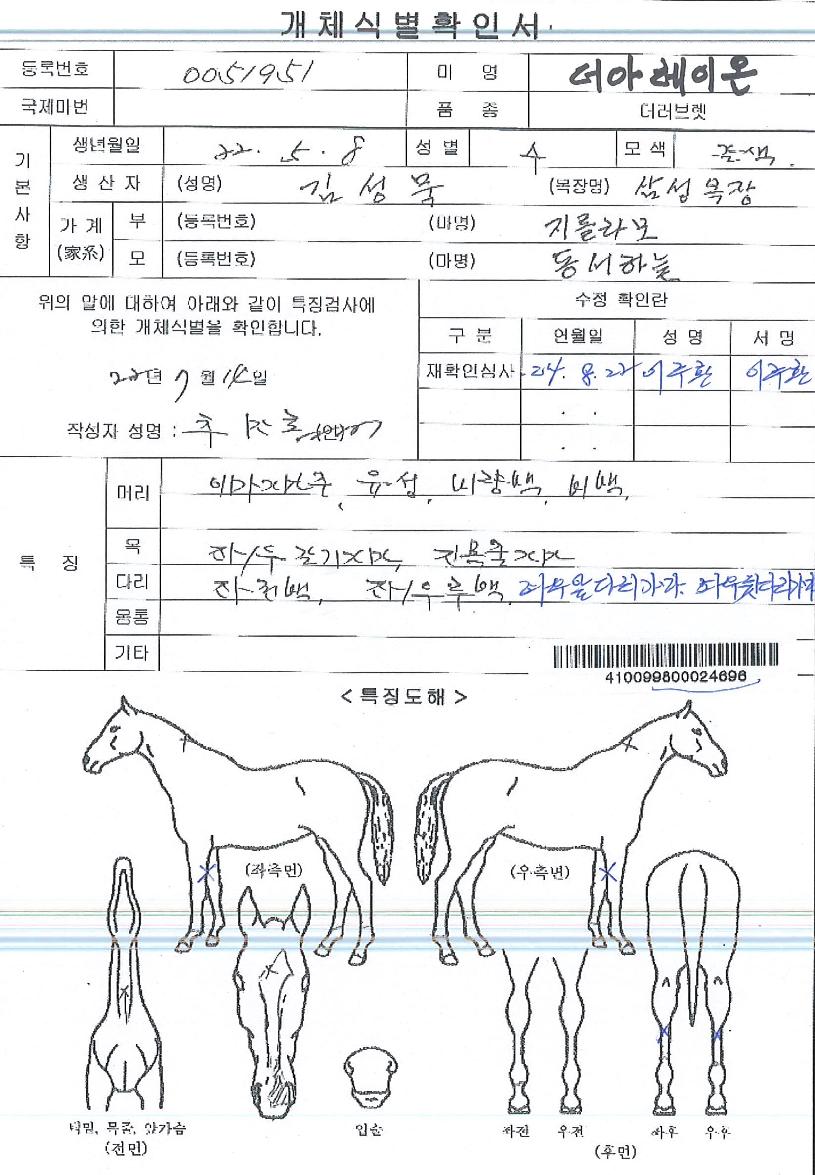 개체식별확인서
등록번호 0051951 마 명 더아레이온
국제마번 품 종 더러브렛
기본사항
생년월일 22. 5. 8 성 별 수 모 색
생 산 자 (성명) 김성묵 (목장명) 삼성목장
가 계 (家系) 부 (등록번호) (마명) 지롤라모
모 (등록번호) (마명) 동서하늘
위의 말에 대하여 아래와 같이 특징검사에
의한 개체식별을 확인합니다.
22년 7월 14일
작성자 성명 :
수정 확인란
구 분 연월일 성 명 서 명
재확인심사 24. 8. 22 이주환 이주환
. .
. .
특 징
머리 유성, 비량백, 비백,
목
다리
몸통
기타
410099800024696
< 특징도해 >
(좌측면) (우측면)
턱밑, 목줄, 앞가슴
(전면)
입술
좌전 우전 좌후 우후
(후면)